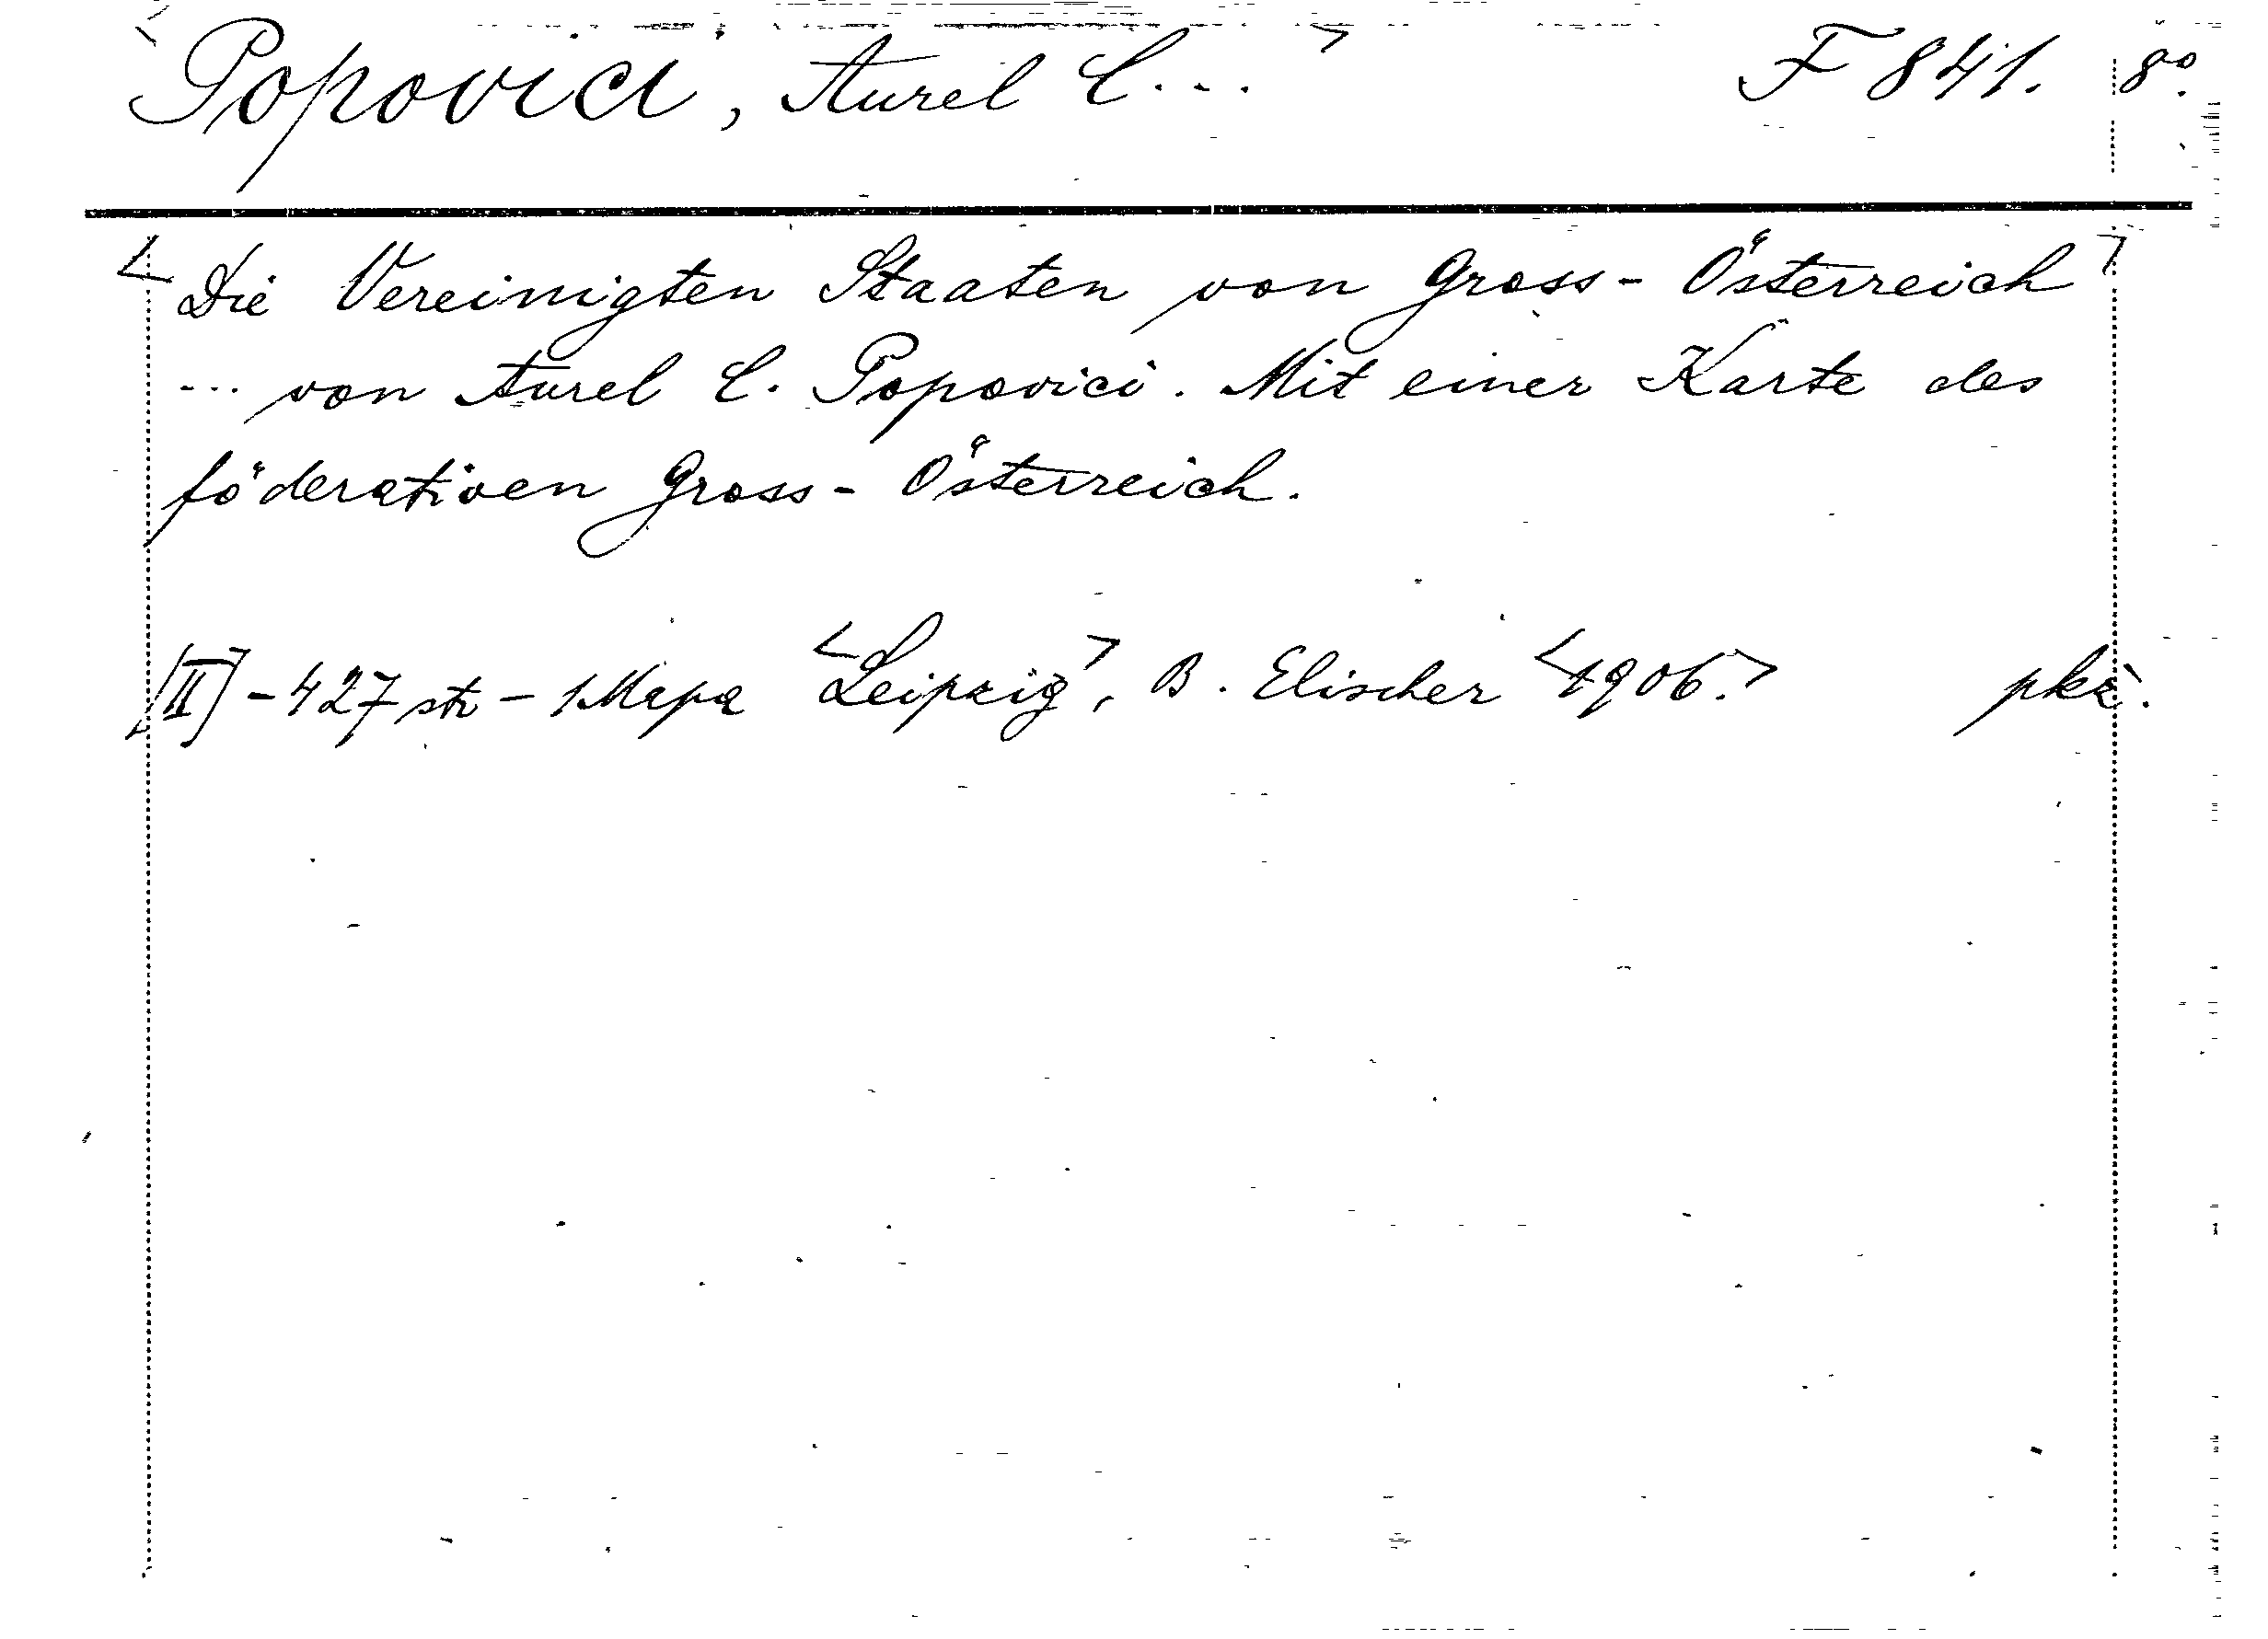 <Popovici, Aurel C...> F 841. 8º.
<Die Vereinigten Staaten von Gross-Österreich>
... von Aurel C. Popovici. Mit einer Karte des
föderativen Gross-Österreich.
[II] - 427 str - 1 Mapa <Leipzig>, B. Elischer <1906.> pkż.